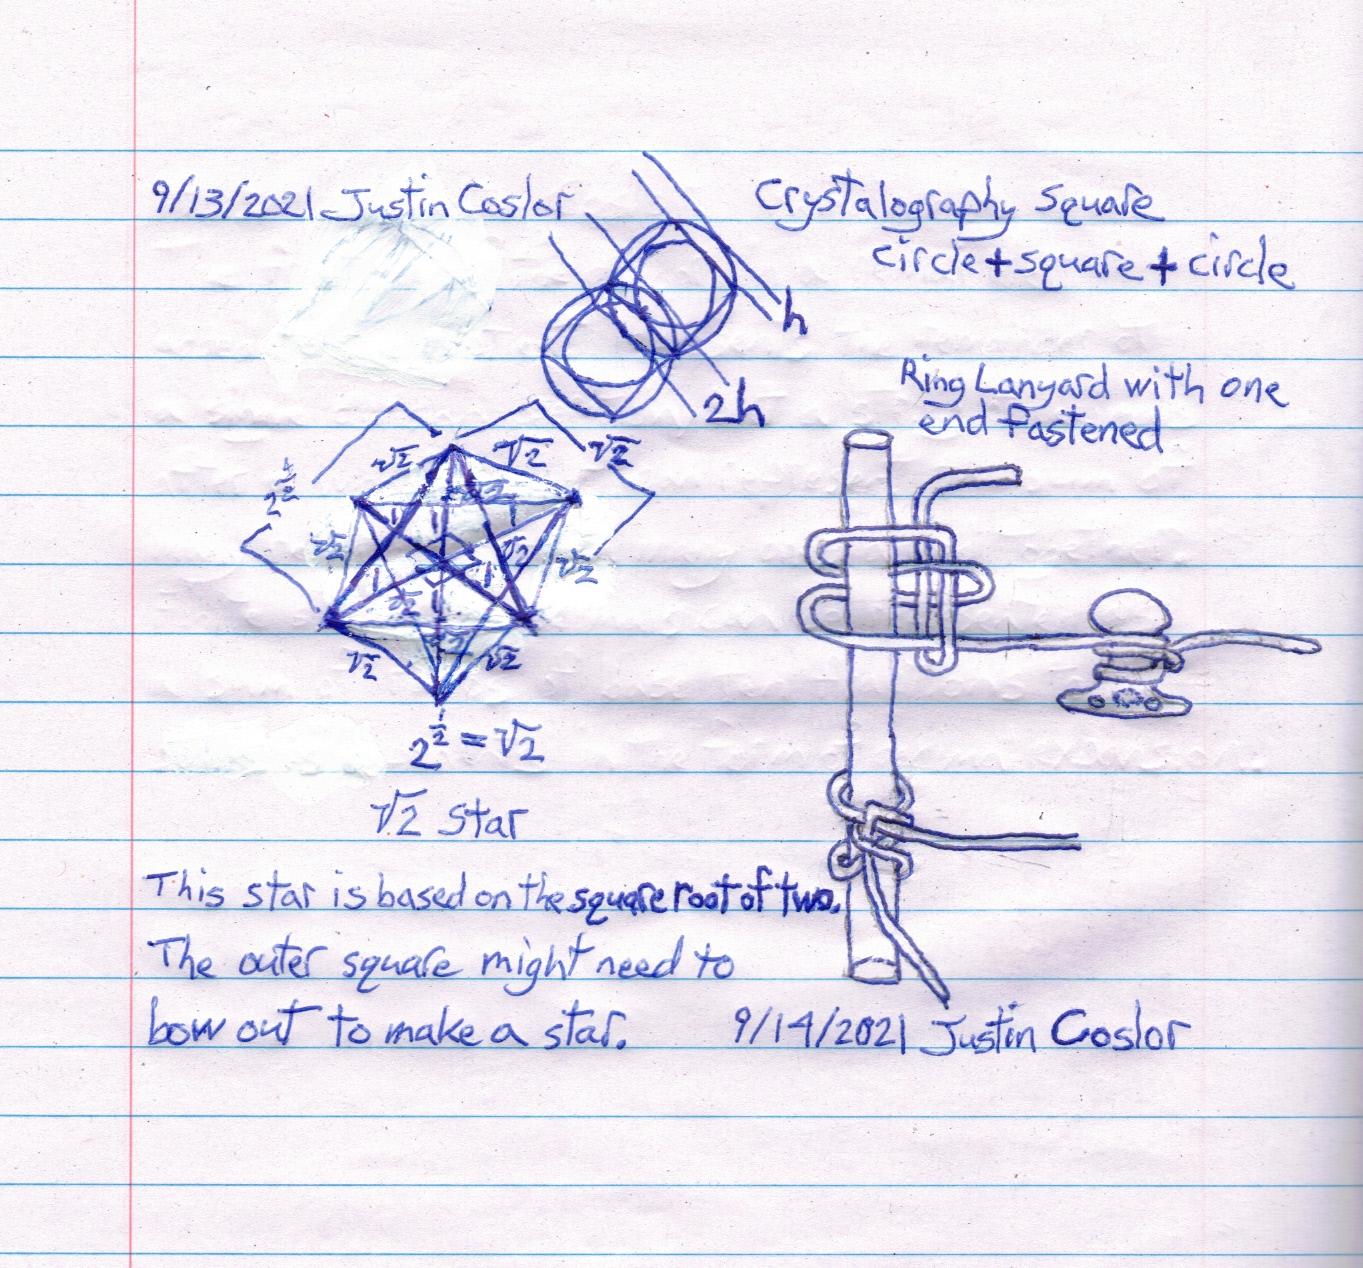 9/13/2021 Justin Coslor
Crystalography Square
circle + square + circle
h
2h
Ring Lanyard with one
end fastened
√2
√2
√2
2^½
√2
√2
√2
√2
1
1
1
1
1
√2
√2
√2
√2
2^½ = √2
√2 Star
This star is based on the square root of two.
The outer square might need to
bow out to make a star.
9/14/2021 Justin Coslor